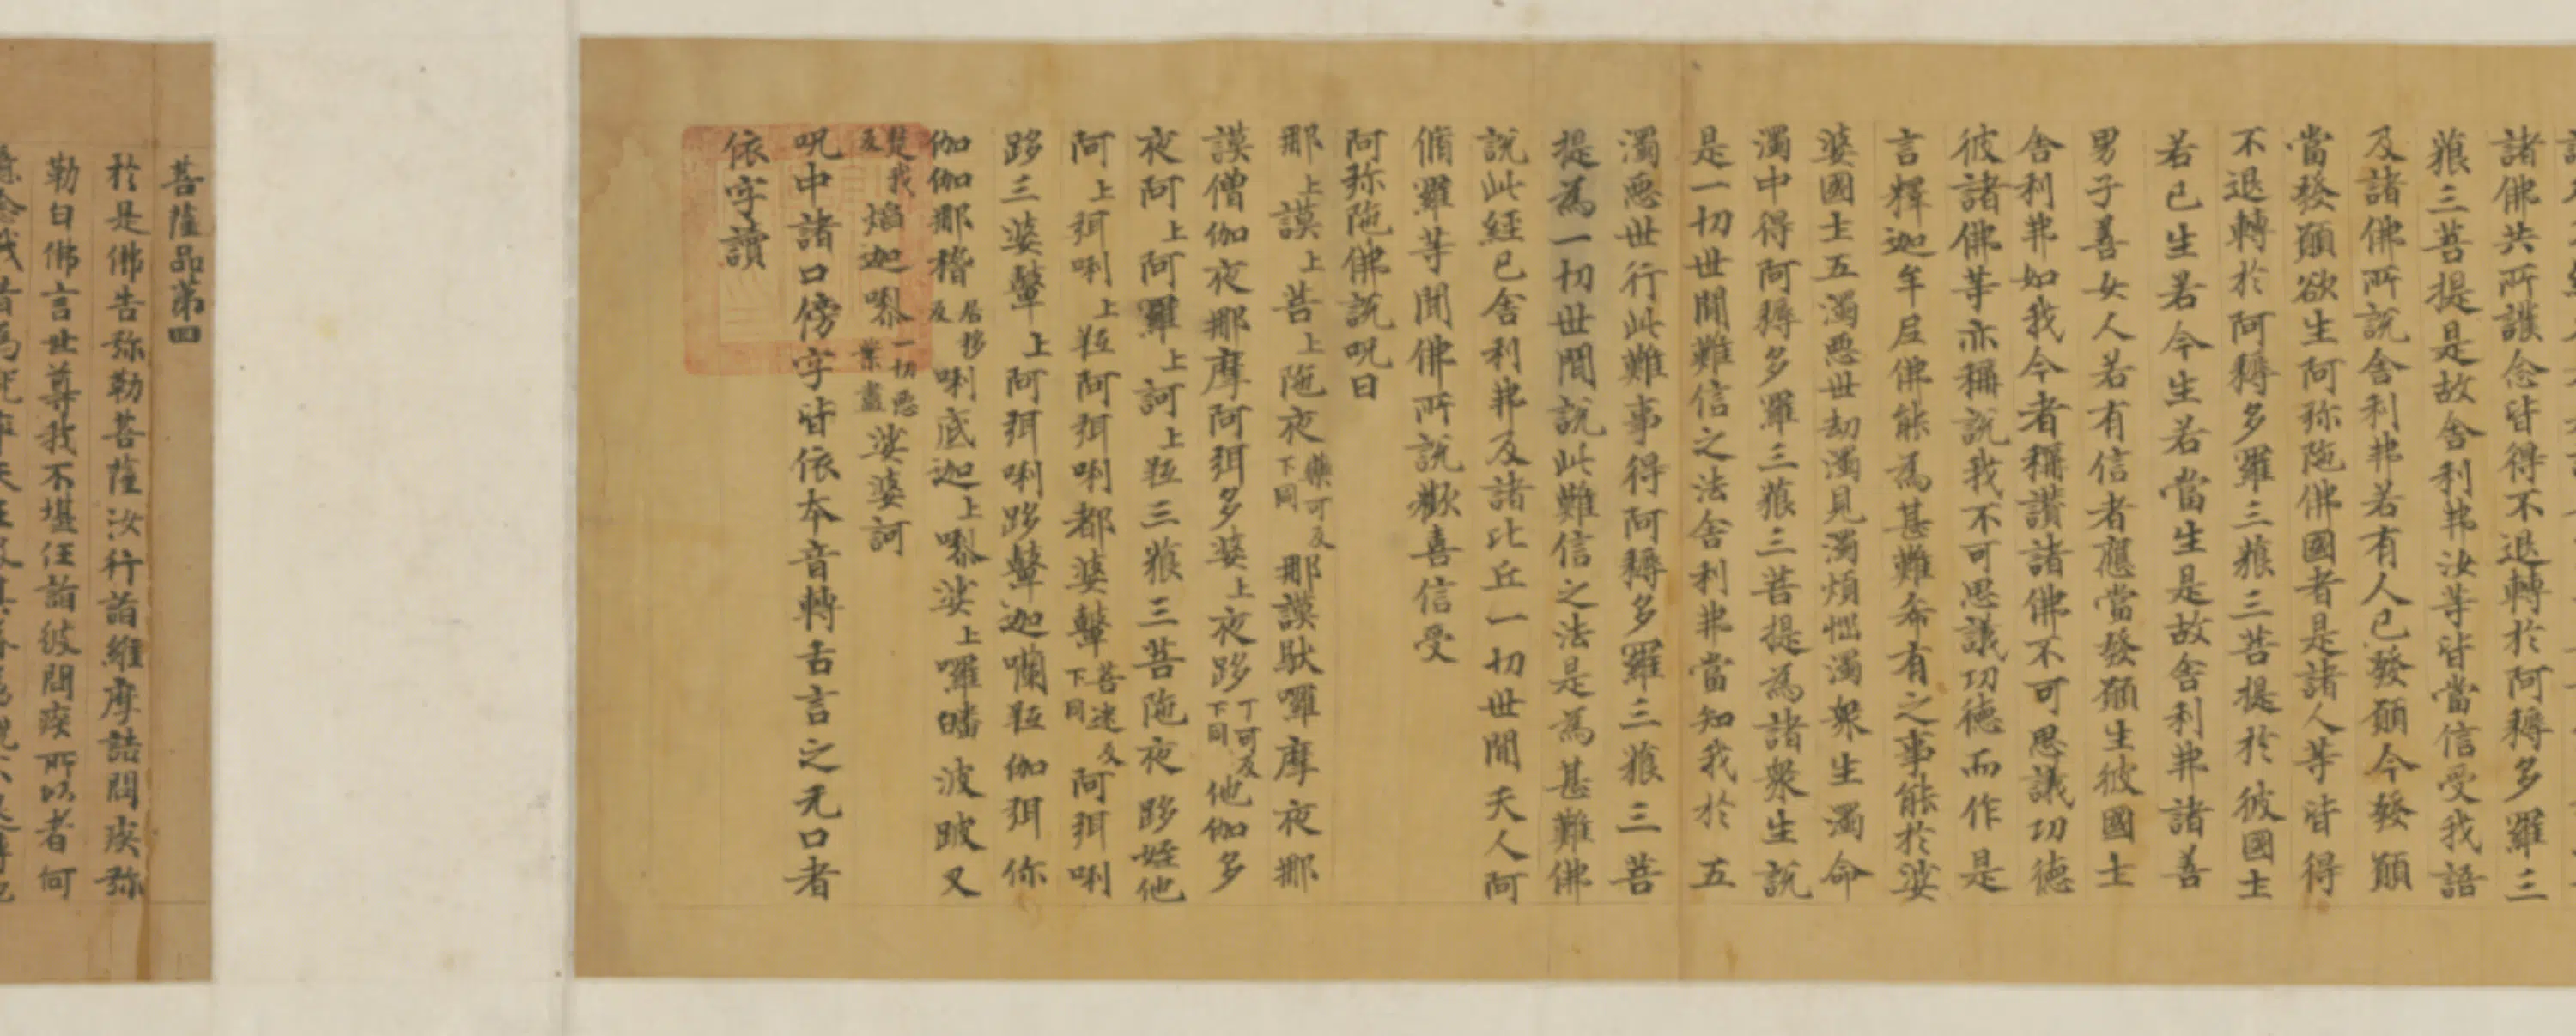 諸佛共所護念皆得不退轉於阿耨多羅三
藐三菩提是故舍利弗汝等皆當信受我語
及諸佛所說舍利弗若有人已發願今發願
當發願欲生阿弥陁佛國者是諸人等皆得
不退轉於阿耨多羅三藐三菩提於彼國土
若已生若今生若當生是故舍利弗諸善
男子善女人若有信者應當發願生彼國土
舍利弗如我今者稱讚諸佛不可思議功德
彼諸佛等亦稱說我不可思議功德而作是
言釋迦牟尼佛能為甚難希有之事能於娑
婆國土五濁惡世劫濁見濁煩惱濁眾生濁命
濁中得阿耨多羅三藐三菩提為諸眾生說
是一切世間難信之法舍利弗當知我於五
濁惡世行此難事得阿耨多羅三藐三菩
提為一切世間說此難信之法是為甚難佛
說此經已舍利弗及諸比丘一切世間天人阿
脩羅等聞佛所說歡喜信受
阿弥陁佛說呪曰
那上謨上菩上陁夜藥可反下同那謨馱囉摩夜那
謨僧伽夜那摩阿弭多婆上夜跢丁可反下同他伽多
夜阿上阿羅上訶上䟦三藐三菩陁夜跢姪他
阿上弭唎上䟦阿弭唎都婆鼙菩迷反下同阿弭唎
跢三婆鼙上阿弭唎跢鼙迦囒䟦伽弭你
伽伽那稽居移反唎底迦上嚟婆上囉皤波跛叉
楚我反焰迦嚟一切惡業盡娑婆訶
呪中諸口傍字皆依本音轉舌言之无口者
依字讀
菩薩品第四
於是佛告弥勒菩薩汝行詣維摩詰問疾弥
勒白佛言世尊我不堪任詣彼問疾所以者何